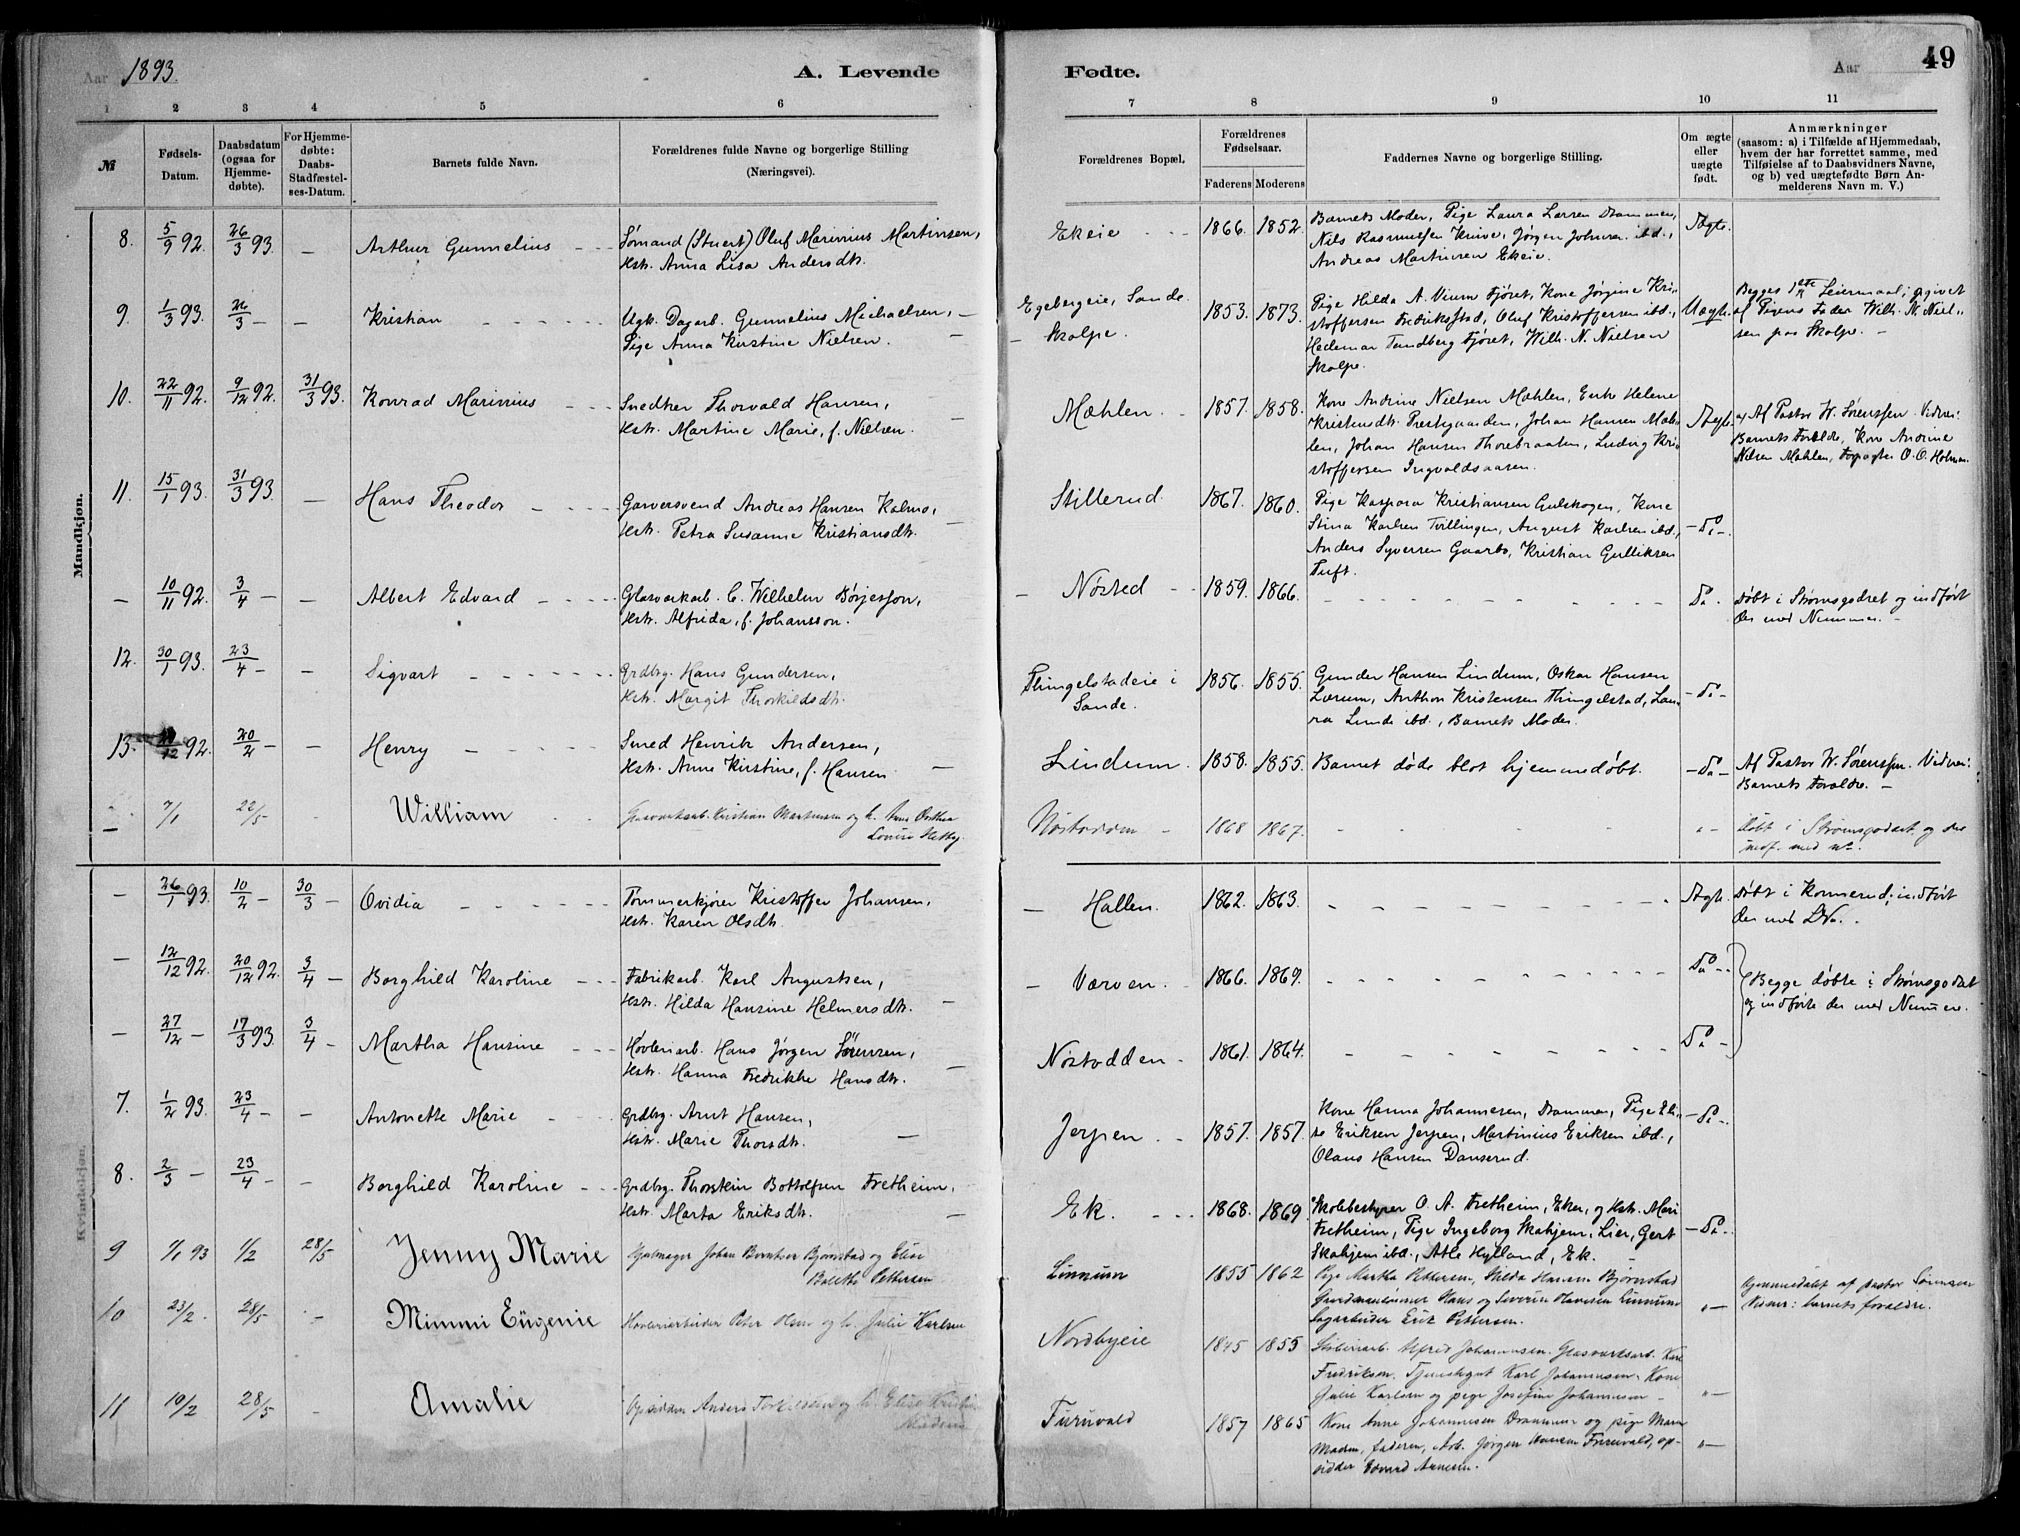 Aar 1893.
A. Levende
Fødte.
Aar
49
1 2 3 4 5 6 7 8 9 10 11
№
Fødsels-
Datum.
Daabsdatum
(ogsaa for
Hjemme-
døbte).
For Hjemme-
døbte:
Daabs-
Stadfæstel-
ses-Datum.
Barnets fulde Navn.
Forældrenes fulde Navne og borgerlige Stilling
(Næringsvei).
Forældrenes Bopæl.
Forældrenes
Fødselsaar.
Faderens Moderens
Faddernes Navne og borgerlige Stilling.
Om ægte
eller
uægte
født.
Anmærkninger
(saasom: a) i Tilfælde af Hjemmedaab,
hvem der har forrettet samme, med
Tilføielse af to Daabsvidners Navne,
og b) ved uægtefødte Børn An-
melderens Navn m. V.)
Mandkjøn.
8. 5/9 92. 26/3 93. — Arthur Gunnelius Sømand (Stuert) Oluf Marinius Martinsen,
Hstr. Anna Lisa Andersdtr.
Ekeie 1866. 1852. Barnets Moder, Pige Laura Larsen Drammen,
Nils Rasmussen Knive, Jørgen Johnsen ibd.,
Andreas Martinsen Ekeie.
Ægte.
9. 1/3 93. 26/3 — — Kristian Ugk. Dagarb. Gunnelius Michaelsen,
Pige Anna Kirstine Nielsen.
Egebergeie, Sande.
Skolpe.
1853. 1873. Pige Hilda A. Viem Fjøret, Kone Jørgine Kri-
stoffersen Fredriksstad, Oluf Kristoffersen ibd.,
Hedemar Tandberg Fjøret, Wilh. N. Nielsen
Skolpe.
Uægt. Begges 1ste Leiermaal; opgivet
af Pigens Fader Wilh. N. Niel-
sen paa Skolpe. —
10. 22/11 92. 9/12 92. 31/3 93. Konrad Marinius Snedker Thorvald Hansen,
Hstr. Martine Marie, f. Nielsen.
Mæhlen. 1857. 1858. Kone Andrine Nielsen Mæhlen, Enke Helene
Kristensdtr. Prestegaarden, Johan Hansen Mæh-
len, Johan Hansen Thorebraaten, Ludvig Kri-
stoffersen Ingvaldsaasen.
Ægt. Af Pastor W. Sørenssen. Vidner:
Barnets Forældre, Kone Andrine
Nilsen Mæhlen, Forpagter O. O. Holman.
11. 15/1 93. 31/3 93. — Hans Theodor Garversvend Andreas Hansen Kalmo,
Hstr. Petra Susanne Kristiansdtr.
Stillerud. 1867. 1860. Pige Kaspara Kristiansen Gulskogen, Kone
Stina Karlsen Tvillingen, August Karlsen ibd.,
Anders Syversen Gaarbo, Kristian Gulliksen
Tuft.
— Do —
— 10/11 92. 3/4 — — Albert Edvard Glasverkarb. C. Wilhelm Børjesson,
Hstr. Alfrida, f. Johansson.
Nøsted 1859. 1866. Do. Døbt i Strømsgodset og indført
der med Nummer. —
12. 30/1 93. 23/4 — — Sigvart Grdbrg. Hans Gundersen,
Hstr. Margit Thorkildsdtr.
Thingelstadeie i
Sande.
1856. 1855. Gunder Hansen Lindum, Oskar Hansen
Lærum, Anthon Kristensen Thingelstad, Lau-
ra Linde ibd., Barnets Moder.
— Do —
13. /12 92. 20/2 — — Henry Smed Henrik Andersen,
Hstr. Anne Kirstine, f. Hansen.
Lindum. 1858. 1855. Barnet døde blot hjemmedøbt.
— Do — Af Pastor W. Sørenssen. Vidner:
Barnets Forældre. —
— 7/1 22/5 William Glasværksarb. Kristian Martinsen og h. Anne Dorthea
Lovise Hetby.
Nøstodden 1868 1867. Døbt i Strømsgodset og der
indf. med No.
Kvindekjøn.
— 26/1 93. 10/2 — 30/3 — Ovidia Tømmerkjører Kristoffer Johansen,
Hstr. Karen Olsdtr.
Hallen. 1862. 1863. Ægt. Døbt i Konnerud; indført
der med No.
— 12/12 92. 20/12 92. 3/4 — Borghild Karoline Fabrikarb. Karl Augustsen,
Hstr. Hilda Hansine Helmersdtr.
Værven. 1866. 1869. Do.
Begge døbte i Strømsgodset
og indførte der med Nummer.
— 27/12 — 17/3 93. 3/4 — Martha Hansine Høvleriarb. Hans Jørgen Sørensen,
Hstr. Hanna Fredrikke Hansdtr.
Nøstodden 1861. 1864. Do —
7. 1/2 93. 23/4 — — Antonette Marie Grdbrg. Arnt Hansen,
Hstr. Marie Thorsdtr.
Jerpen 1857. 1857. Kone Hanna Johannesen, Drammen, Pige Eli-
se Eriksen Jerpen, Martinius Eriksen ibd.,
Olaus Hansen Danserud.
— Do —
8. 2/3 — 23/4 — — Borghild Karoline Grdbrg. Thorstein Bottolfsen Fretheim,
Hstr. Marta Eriksdtr.
Ek. 1868. 1869. Skolebestyrer O. A. Fretheim, Eker, og Hstr. Mari
Fretheim, Pige Ingeborg Skahjem, Lier, Gert
Skahjem ibd., Atle Hylland, Ek.
— Do —
9 1/1 93 1/2 28/5 Jenny Marie Hjulmager Johan Bernther Bjørnstad og Elise
Bolethe Pettersen
Linnum 1855 1862 Pige Martha Pettersen, Hilda Hansen Bjørnstad
Gaardmandssønner Hans og Severin Hansen Linnum
Sagarbeider Erik Pettersen.
Hjemmedøbt af pastor Sørensen
Vidner: barnets forældre.
10 23/2. 28/5 — Mimmi Eugenie Høvleriarbeider Peter Olsen og h. Julie Karlsen
Nordbyeie 1845 1855 Sliberiarb. Alfred Johannesen. Glasværksarb. Karl
Fredriksen. Tjenestegut Karl Johannesen. Kone
Julie Karlsen og pige Josefine Johannesen —
11 10/2 28/5 Amalie Opsidder Anders Torkilsen og h. Elise Kristine
Madsen
Furuvald 1857 1865 Kone Anne Johannesen Drammen og pige Maren
Madsen, faderen, Arb. Jørgen Hansen Furuvald, op-
sidder Edvard Arnesen.